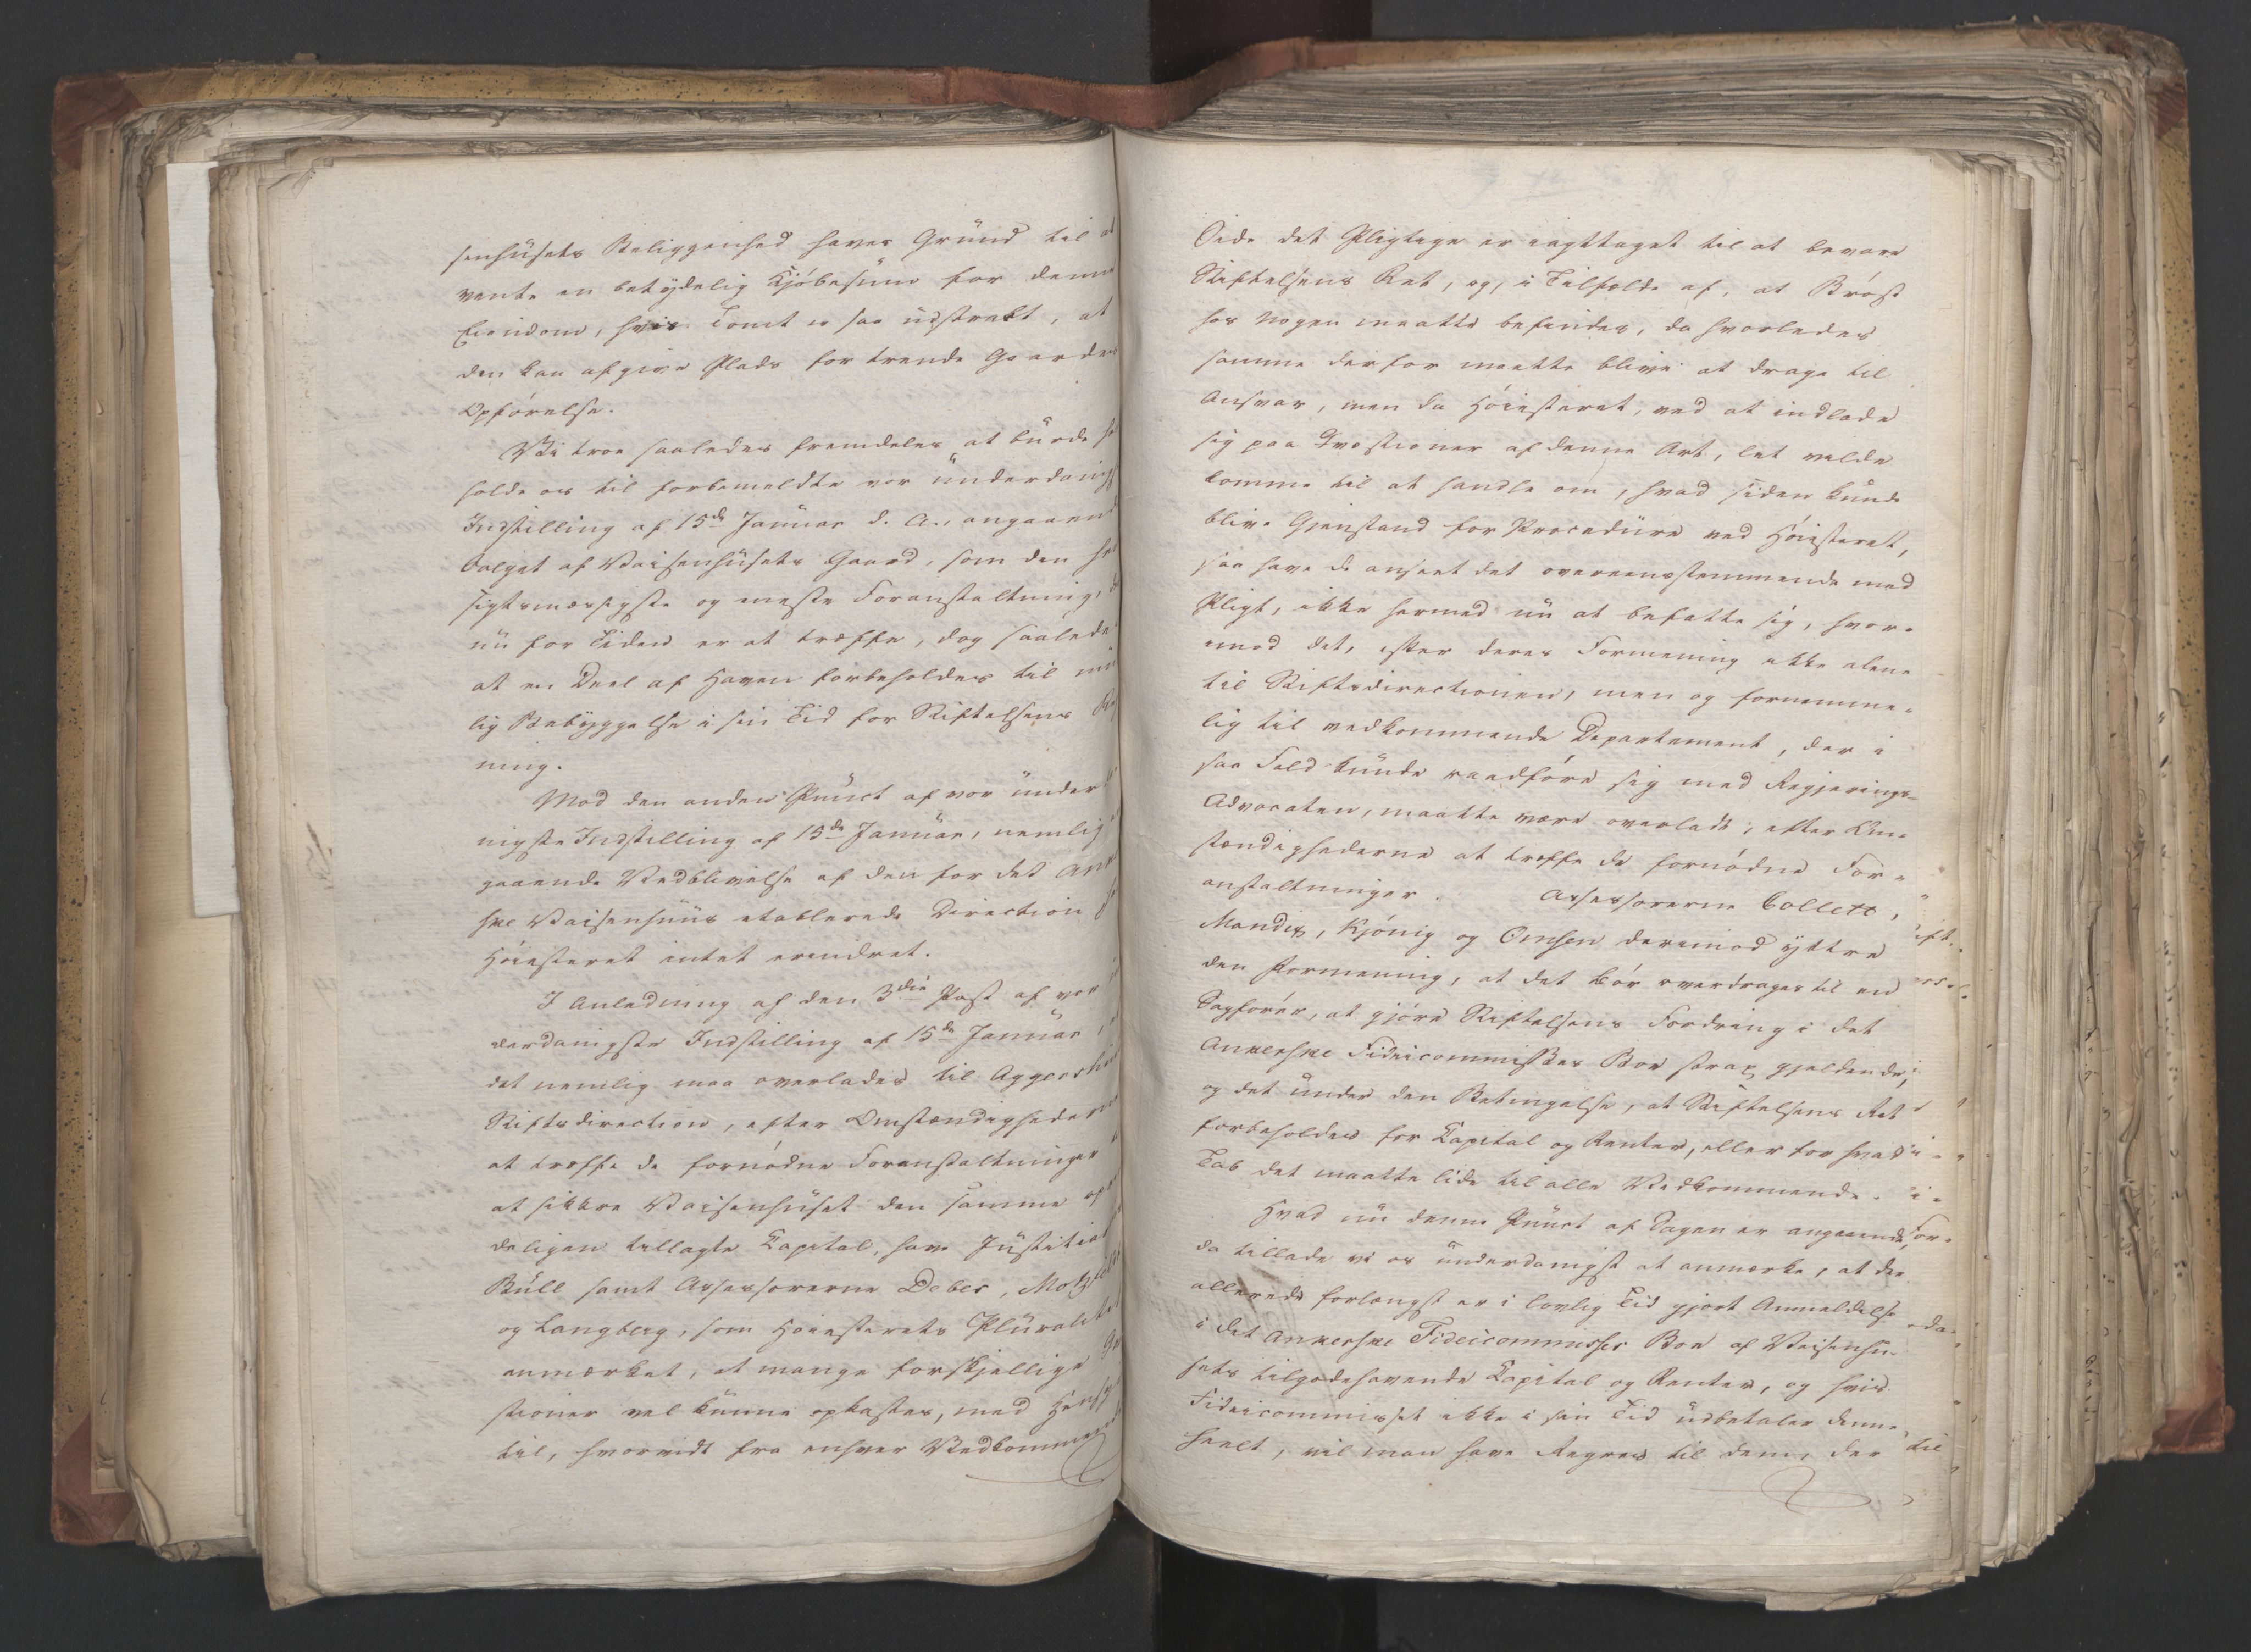 senhusets Beliggenhed haves Grund til at
vente en betydelig Kjøbesum for denne
Eiendom, hvis Tomt er saa udstrakt, at
den kan afgive Plads for trende Gaardes
Opførelse.
Vi troe saaledes fremdeles at burde
holde os til forbemeldte vor underdanigs
Indstilling af 15de Januar d. A., angaaend
Salget af Vaisenhusets Gaard, som den
sigtsmæssigste og meste Foranstaltning,
nu for Tiden er at træffe, dog saalede
at en Deel af Haven forbeholdes til
lig Bebyggelse i sin Tid for Stiftelsens
ning.
Mod den anden Punct af vor under
nigste Indstilling af 15de Januar, nemlig
gaaende Vedblivelse af den for det Anker
ske Vaisenhuus etablerede Direction
Høiesteret intet erindret.
I Anledning af den 3die Post af vor
derdanigste Indstilling af 15de Januar,
det nemlig maa overlades til Aggershuus
Stiftsdirection, efter Omstændighederne
at træffe de fornødne Foranstaltninger
at sikkre Vaisenhuset den samme op
deligen tillagte Capital, have Justitiar
Bull samt Assessorerne Debes, Motzfeldt
og Langberg, som Høiesterets Pluralitet
anmærket, at mange forskjellige Qvæ
stioner vel kunne opkastes, med Hensyn
til, hvorvidt fra enhver Vedkommende
Side det Pligtige er iagttaget til at bevare
Stiftelsens Ret, og, i Tilfælde af, at Brøst
hos Nogen maatte befindes, da hvorledes
samme derfor maatte blive at drage til
Ansvar, men da Høiesteret, ved at indlade
sig paa Qvæstioner af denne Art, let vilde
komme til at handle om, hvad siden kunde
blive Gjenstand for Procedure ved Høiesteret,
saa have de anseet det overeensstemmende med
Pligt, ikke hermed nu at befatte sig, hvor-
imod det, efter deres Formening ikke alene
til Stiftsdirectionen, men og fornemme-
lig til vedkommende Departement, der i
saa Fald kunde raadføre sig med Regjerings-
Advocaten, maatte være overladt, efter Om-
stændighederne at træffe de fornødne For-
anstaltninger. Assessorerne Collett,
Mandix, Kjönig og Omsen derimod yttre
den Formening, at det bør overdrages til en
Sagfører, at gjøre Stiftelsens Fordring i det
Ankerske Fideicommisses Boe strax gjældende,
og det under den Betingelse, at Stiftelsens Ret
forbeholdes for Capital og Renter, eller for hvad
Tab det maatte lide til alle Vedkommende.
Hvad nu denne Punct af Sagen er angaaende,
da tillade vi os underdanigst at anmærke, at der
allerede forlængst er i lovlig Tid gjort Anmeldelse
i det Ankerske Fideicommisses Boe af Vaisenhu-
sets tilgodehavende Capital og Renter, og hvis
Fideicommisset ikke i sin Tid udbetaler denne
heelt, vil man have Regres til dem, der
til